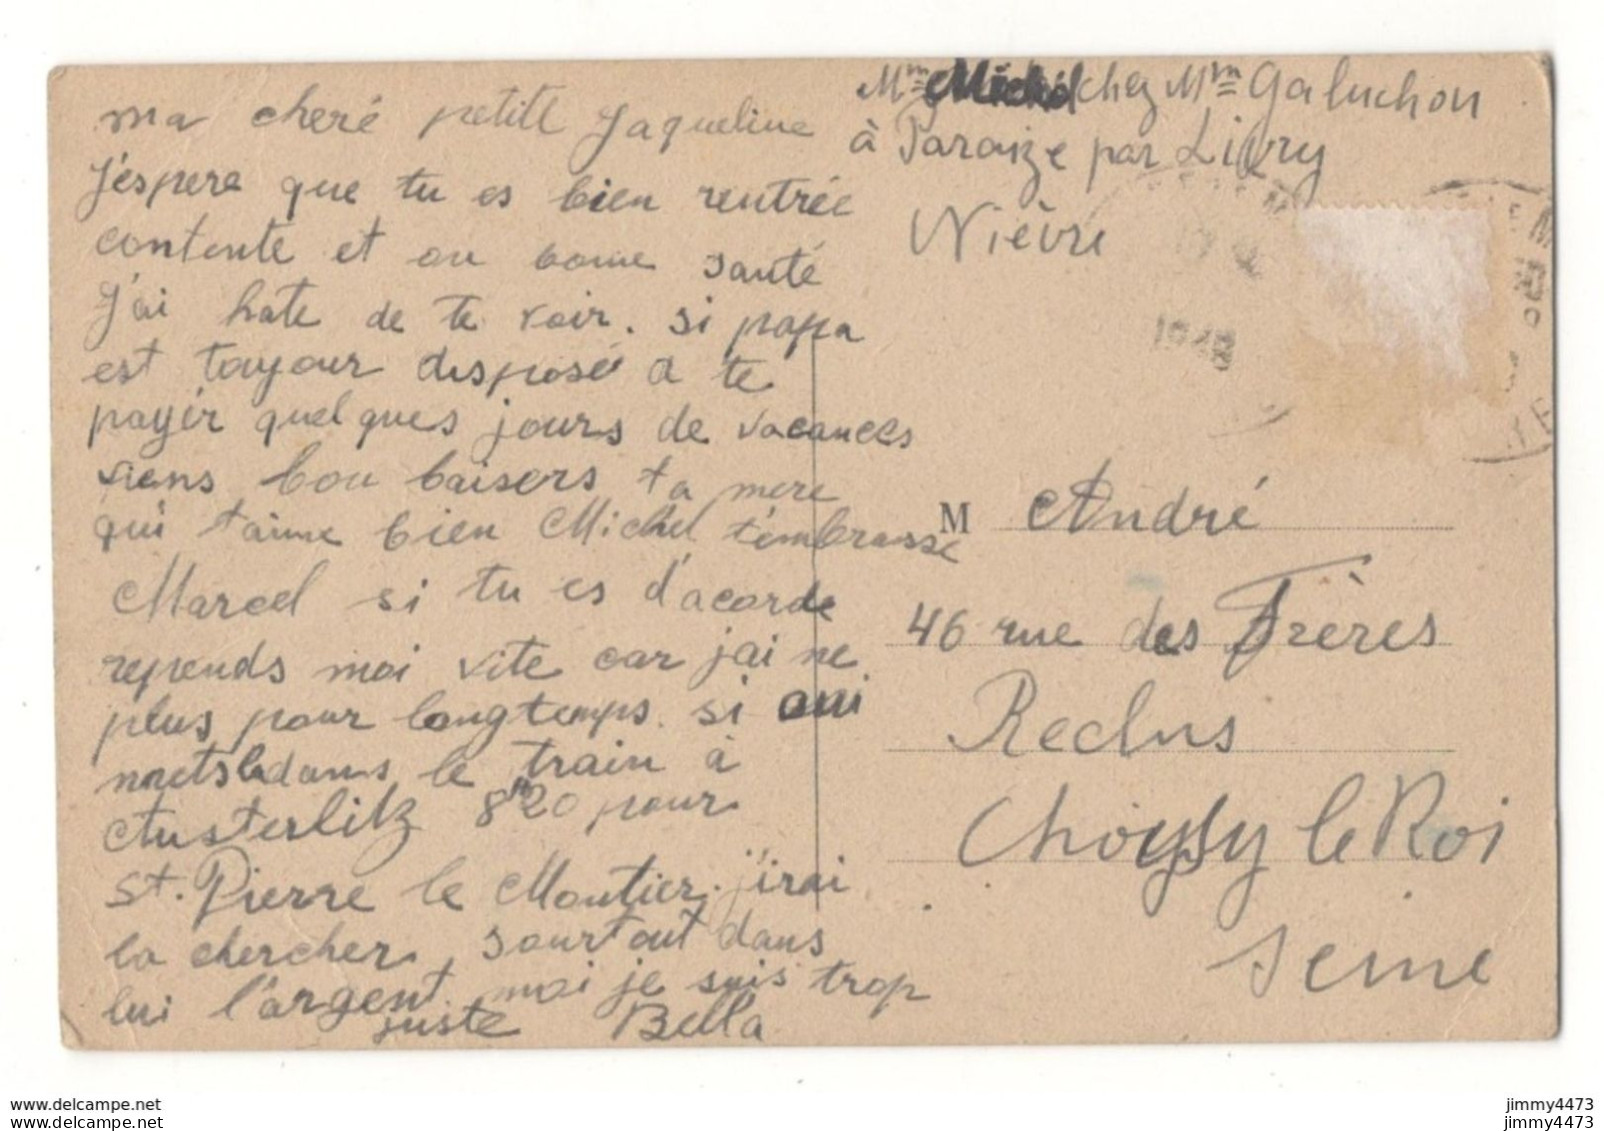 ma cheré petite Jaqueline
J'éspere que tu es bien rentrée
contente et en bonne santé
J'ai hate de te voir. si papa
est toujour disposé a te
payér quelques jours de vacances
viens bon baisers ta mere
qui t'aime bien Michel t'embrasse
Marcel si tu es d'acorde
reponds moi vite car j'ai ne
plus pour longtemps. si oui
mets la dans le train à
Austerlitz 8h20 pour
St. Pierre le Moutier. j'irai
la chercher, sourtout dans
lui l'argent. moi je suis trop
juste Bella
Mme Michel chez Mme Galuchon
à Paraize par Livry
Nièvre
1948
M André
46 rue des Frères
Reclus
Choisy le Roi
Seine
www.delcampe.net
www.delcampe.net
jimmy4473
jimmy4473